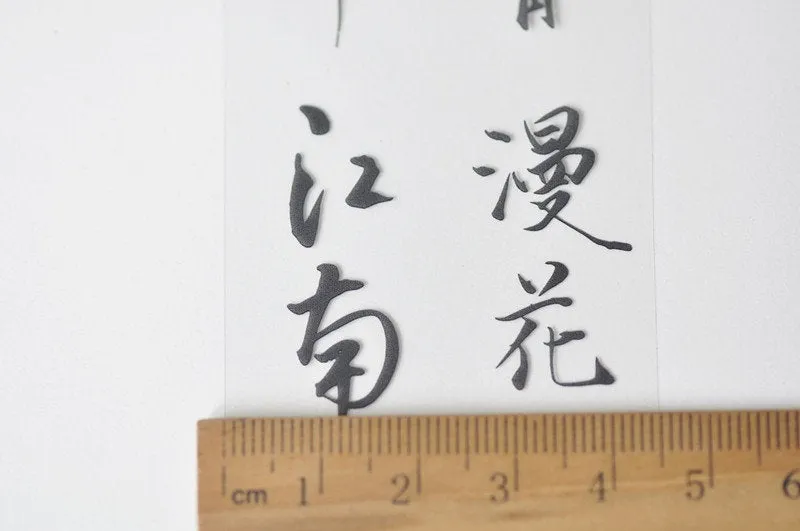 漫花
江南
cm 1 2 3 4 5 6